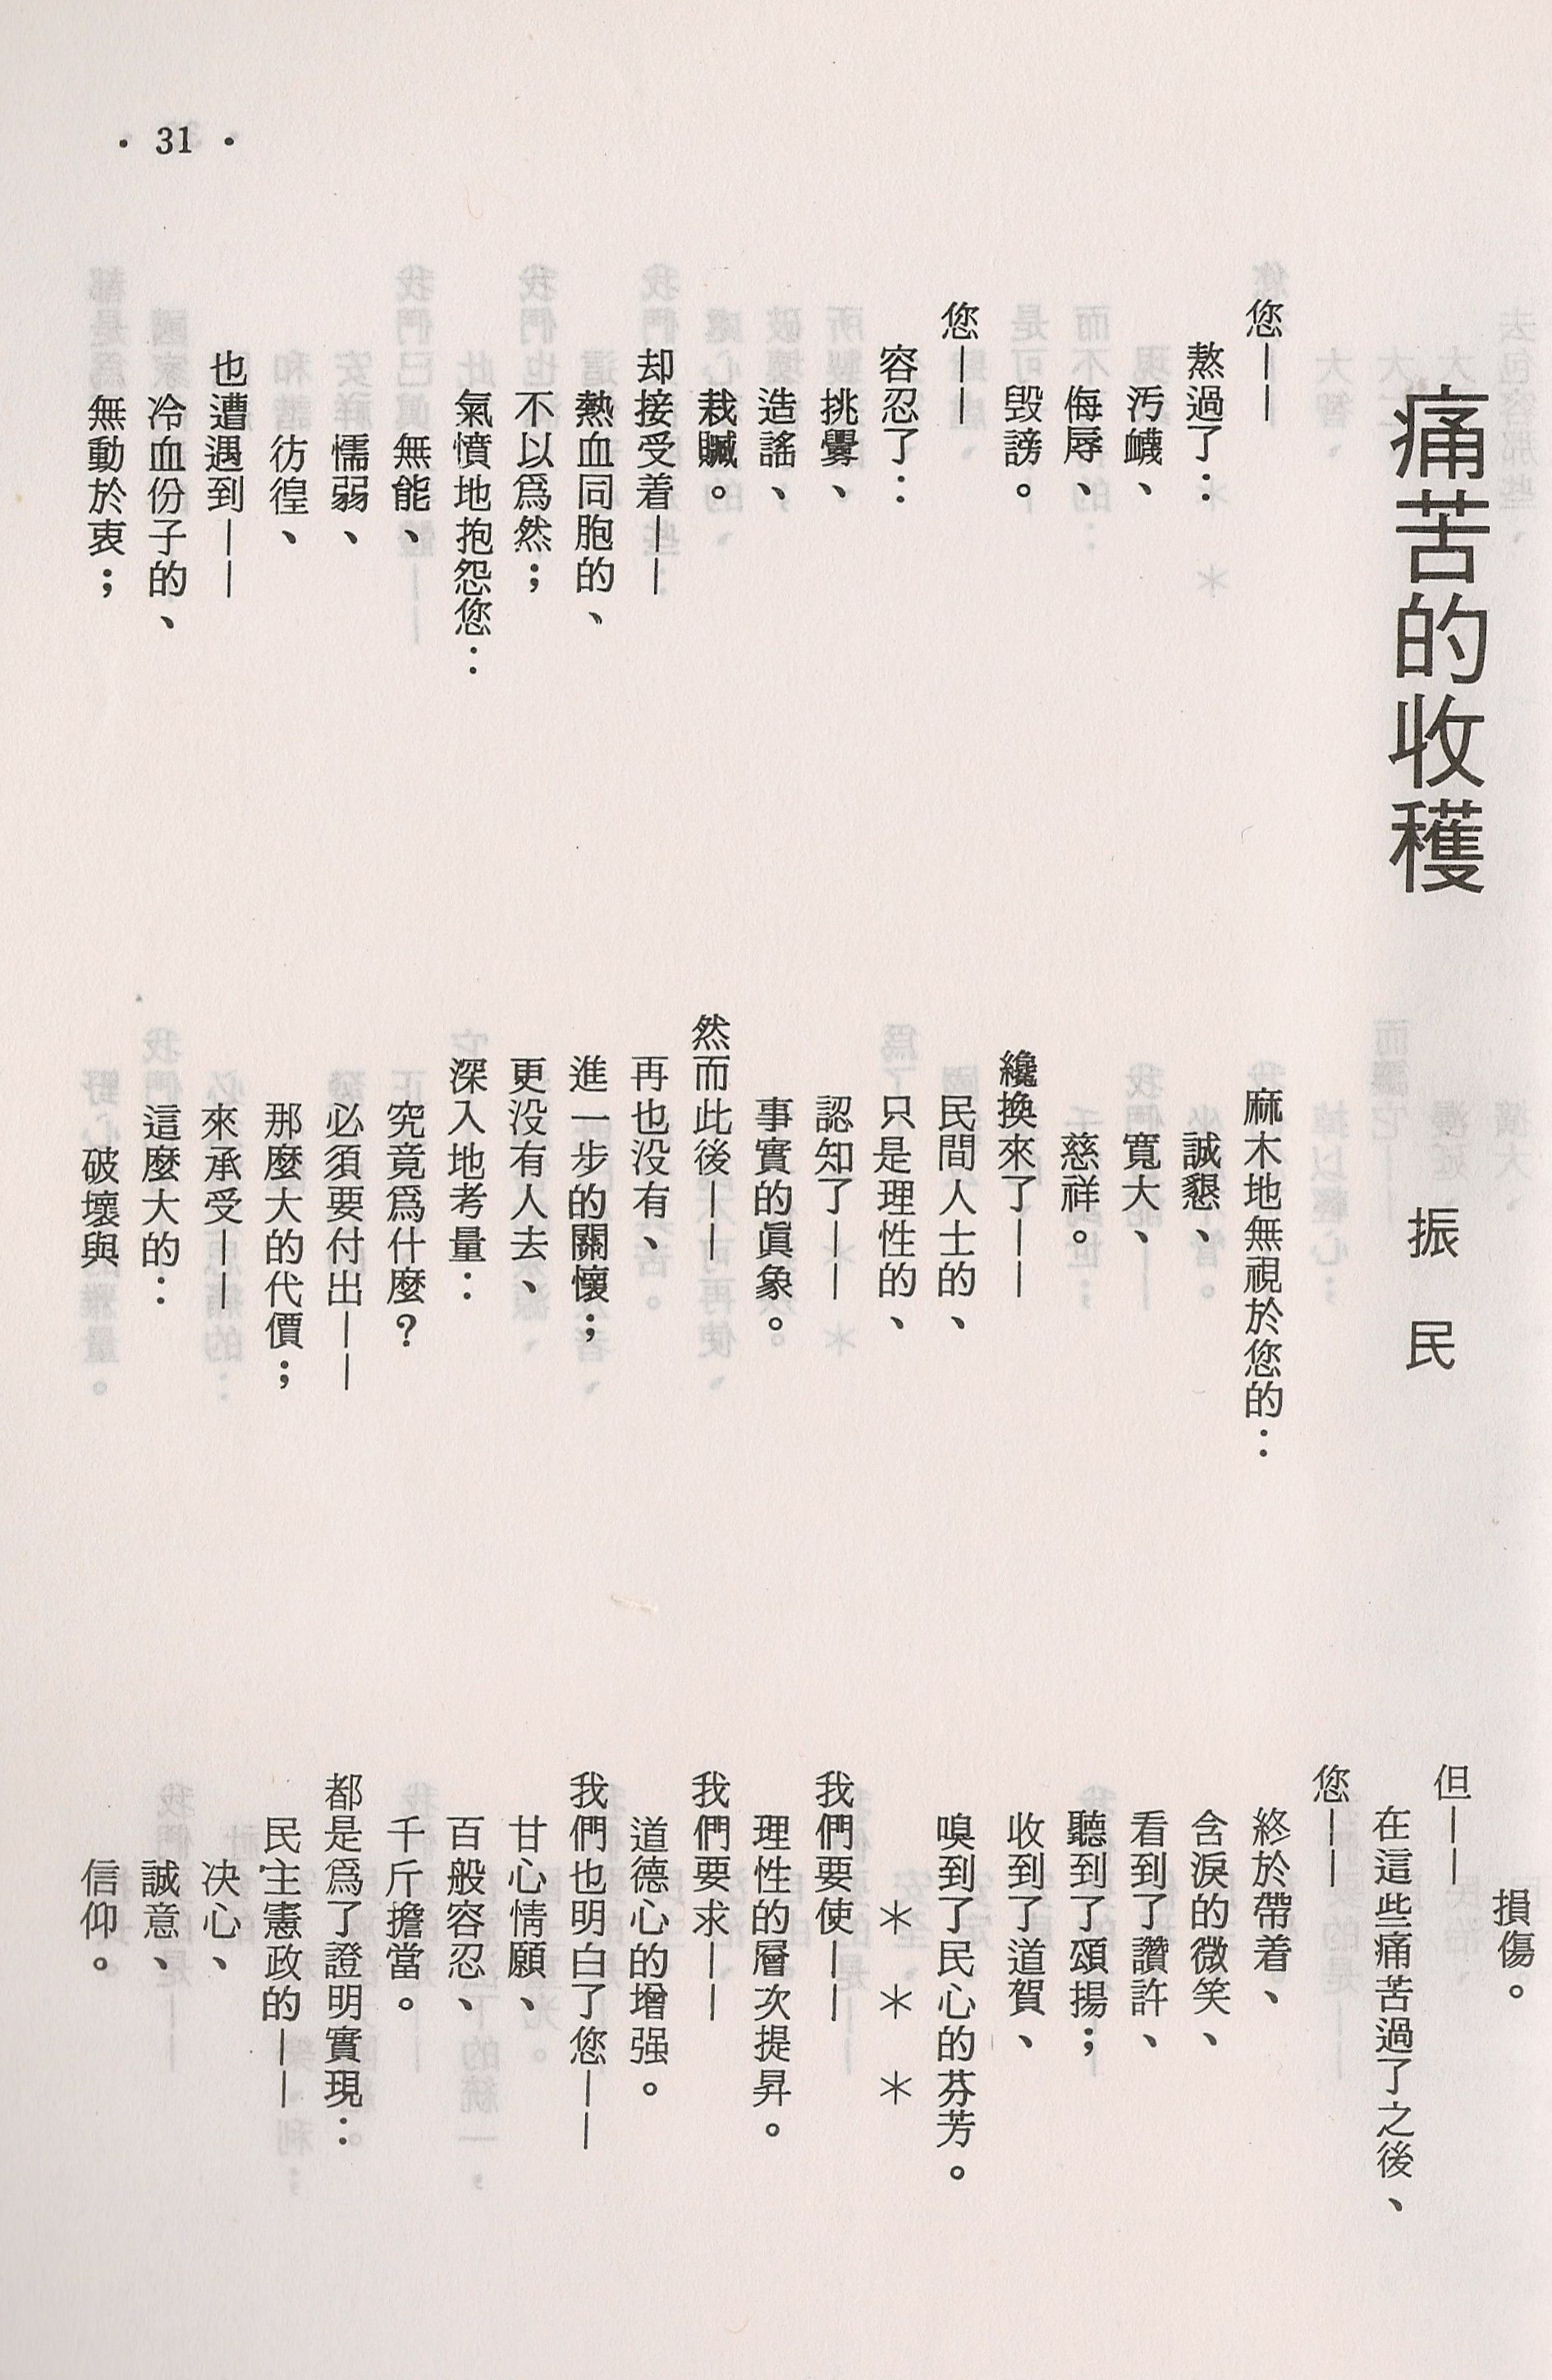 痛苦的收穫
振民
您——
熬過了：
汚衊、
侮辱、
毀謗。
您——
容忍了：
挑釁、
造謠、
栽贓。
却接受着——
熱血同胞的、
不以爲然；
氣憤地抱怨您：
無能、
懦弱、
彷徨、
也遭遇到——
冷血份子的、
無動於衷；
麻木地無視於您的：
誠懇、
寬大、
慈祥。
纔換來了——
民間人士的、
只是理性的、
認知了——
事實的眞象。
然而此後——
再也没有、
進一步的關懷；
更没有人去、
深入地考量：
究竟爲什麼？
必須要付出——
那麼大的代價；
來承受——
這麼大的：
破壞與
損傷。
但——
在這些痛苦過了之後、
您——
終於帶着、
含淚的微笑、
看到了讚許、
聽到了頌揚；
收到了道賀、
嗅到了民心的芬芳。
＊　＊　＊
我們要使——
理性的層次提昇。
我們要求——
道德心的增强。
我們也明白了您——
甘心情願、
百般容忍、
千斤擔當。
都是爲了證明實現：
民主憲政的——
决心、
誠意、
信仰。
・31・